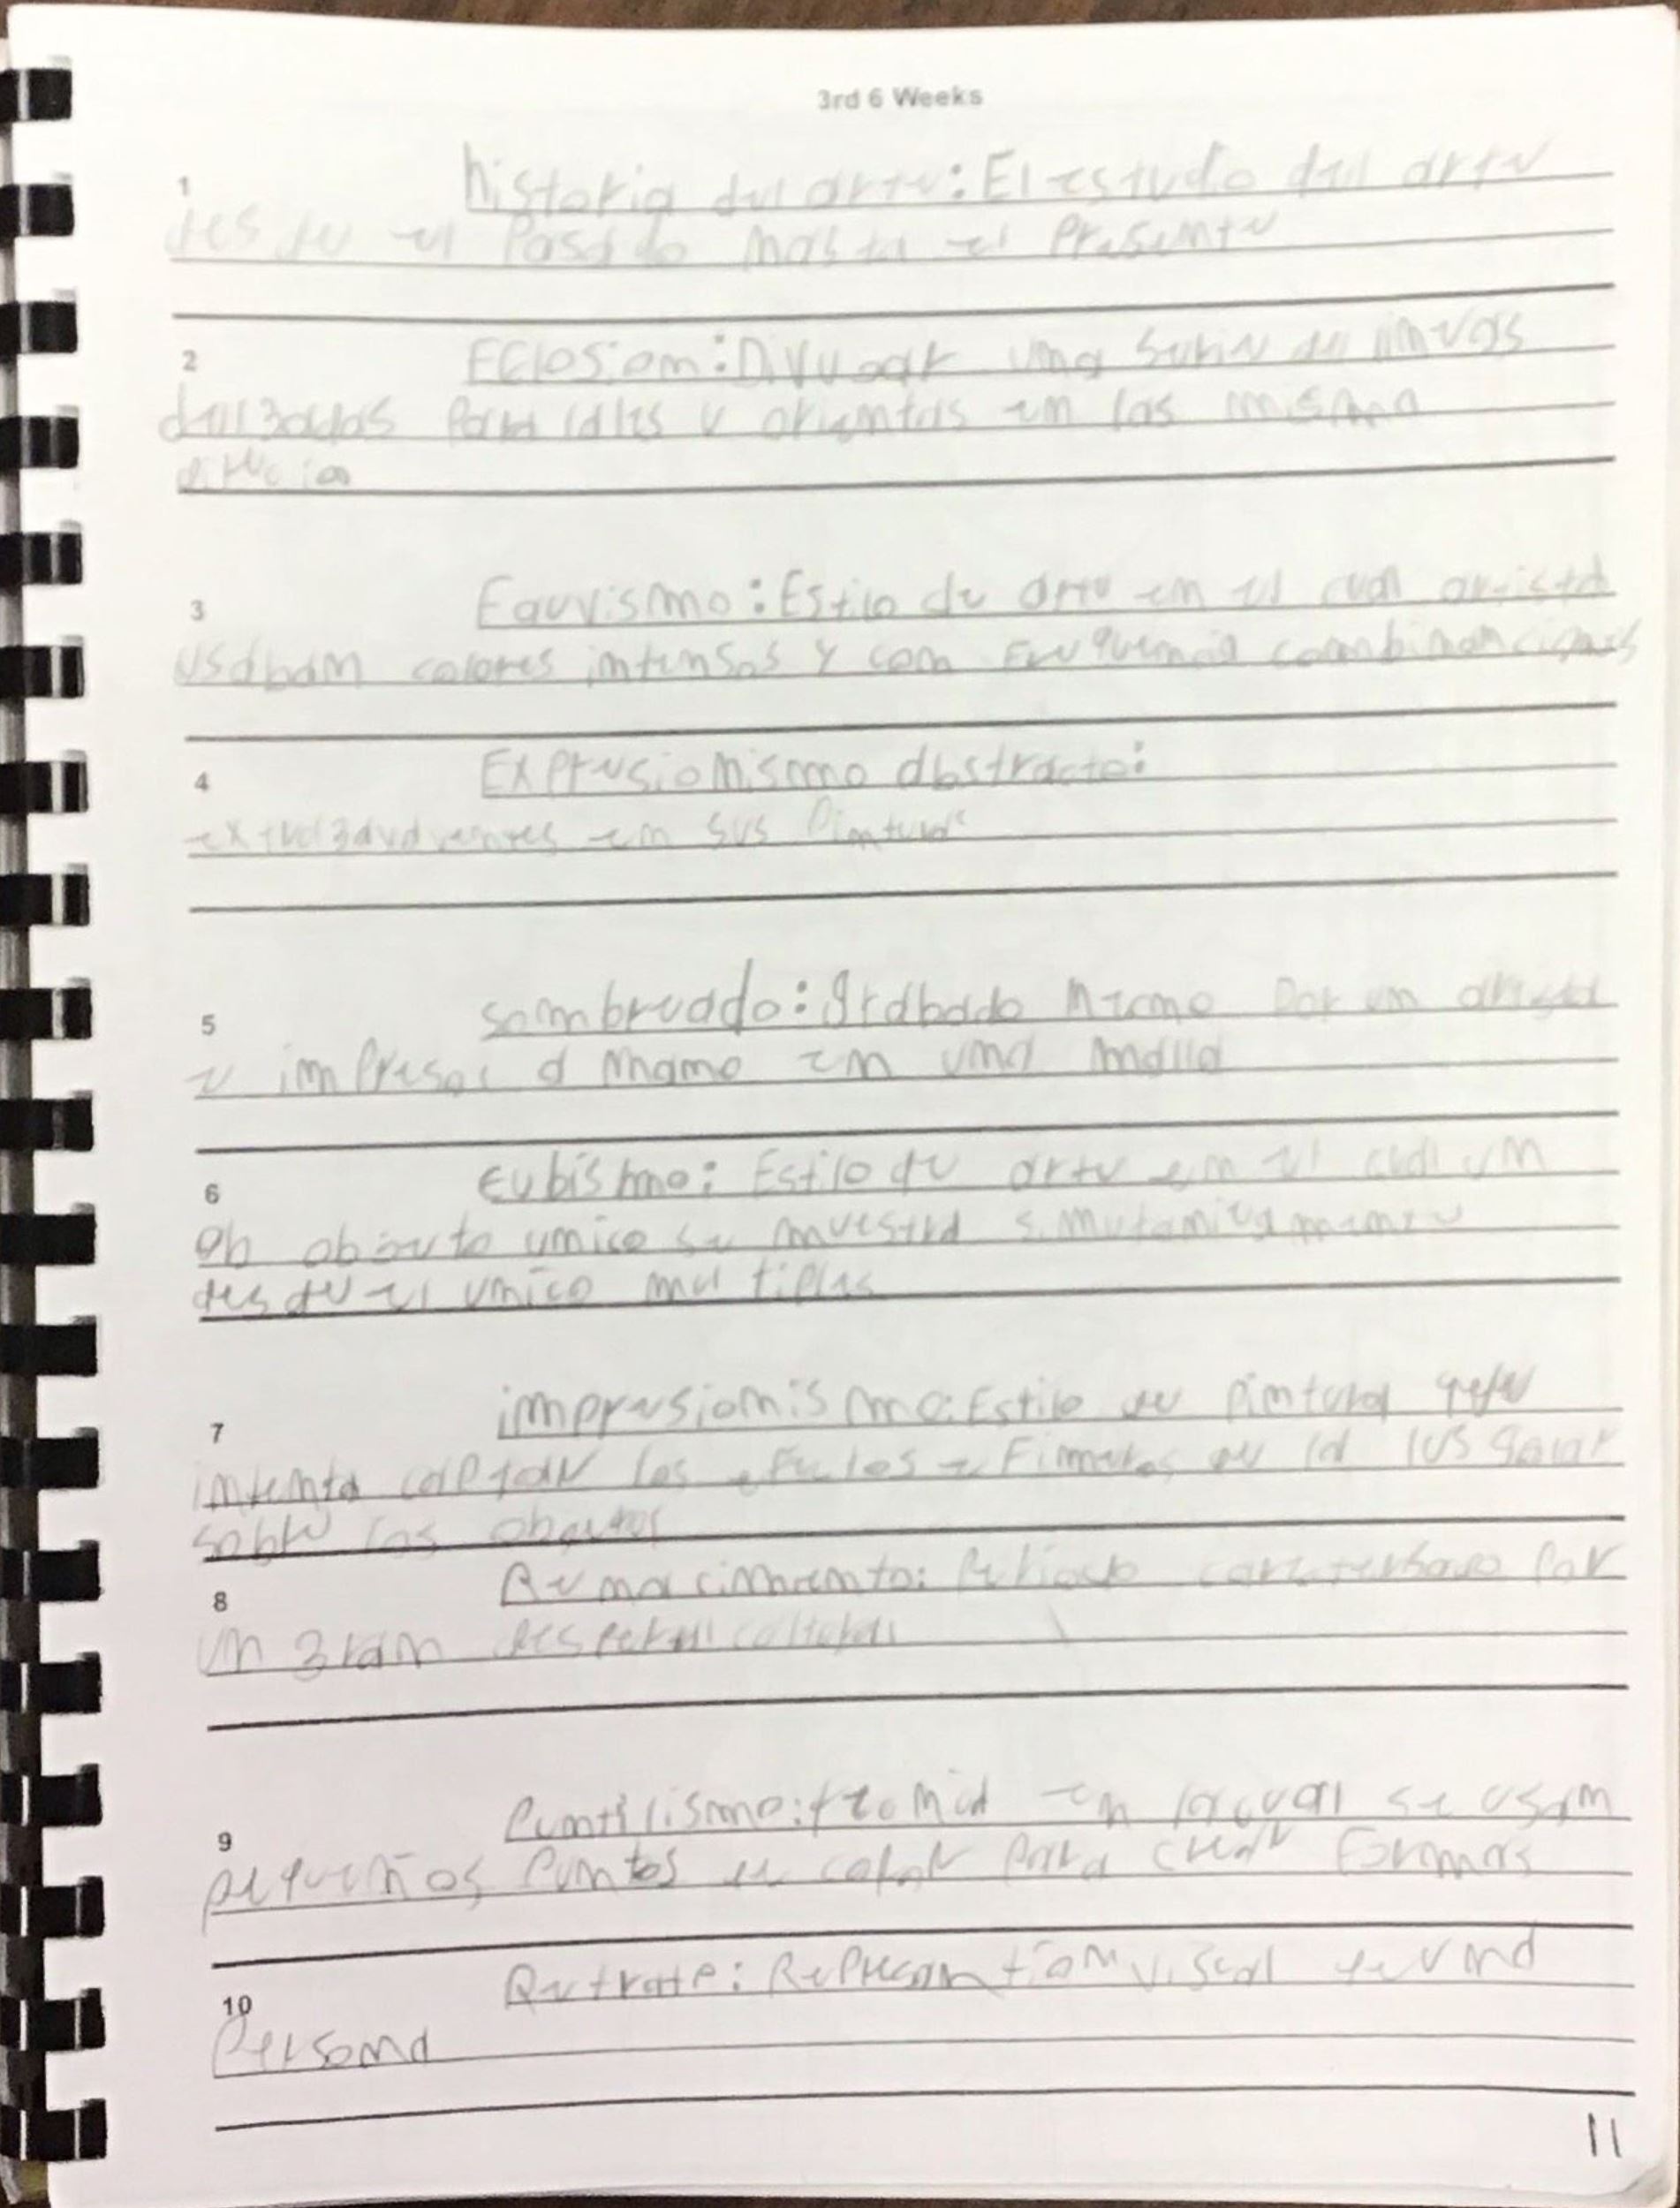 3rd 6 Weeks
1 historia del arte: El estudo del arte
desde el Pasado hasta el Presente
2 Eclosion: Divugar una Serie de lineas
delgadas Paralales y orientas en las misma
3 Fauvismo: Estilo de arte en el cual artista
usaban colores intensos y con combinanciones
4 Expresionismo abstracto:
en sus Pinturas
5 sombreado: grabado hecho Por un artista
e impresos a mano en una malla
6 Cubismo: Estilo de arte en el cual un
ob objeto unico se muestra simutaniegamente
desde el unico multiples
7 impresionismo: Estilo de Pintura
intenta captar los efectos de la lus solar
sobre los objetos
8 Renacimiento: Periodo Por
un gran
9 Puntilismo: tecnica en la cual se usan
pequeños Puntos de color Para crear Formas
10 Retrate: Represention visual de una
Persona
11